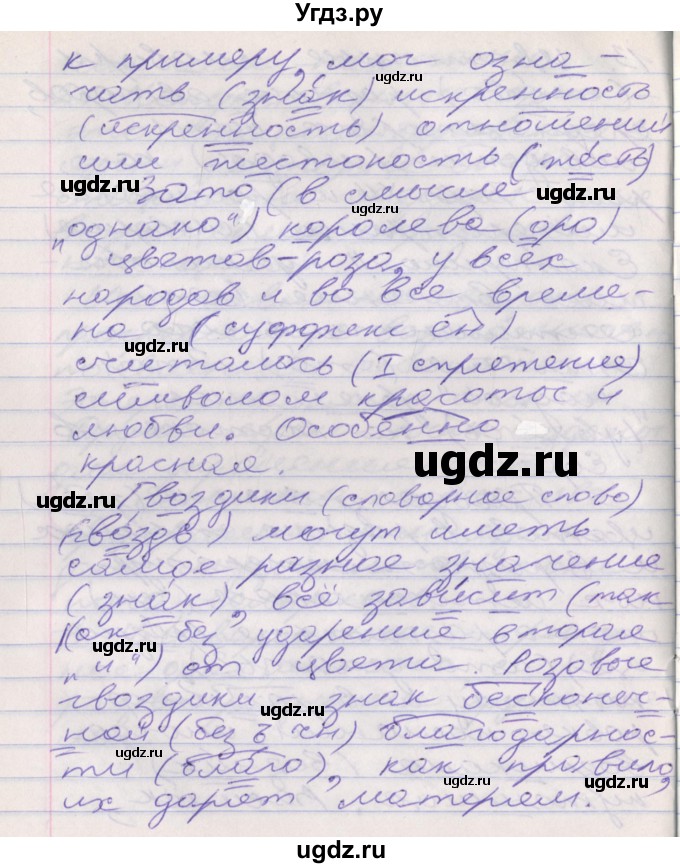 Угдз.ру
к примеру, мог озна-
чать (знак) искренность
(искренность) отношений
или жестокость (жесть)
ugdz.ru
Зато (в смысле
ugdz.ru
"однако") королева (оро)
цветов-роза, у всех
народов и во все време-
на (суффикс ен)
ugdz.ru
считалась (I спряжение)
символом красоты и
любви. Особенно
красная.
ugdz.ru
Гвоздики (словарное слово)
(гвоздь) могут иметь
самое разное значение
(знак), всё зависит (так
ugdz.ru
как без ударение вторая
"и") от цвета. Розовые
гвоздики - знак бесконеч-
ugdz.ru
ной (без ь чн) благодарнос-
ugdz.ru
ти (благо), как правило,
ugdz.ru
их дарят матерям.
ugdz.ru
ugdz.ru